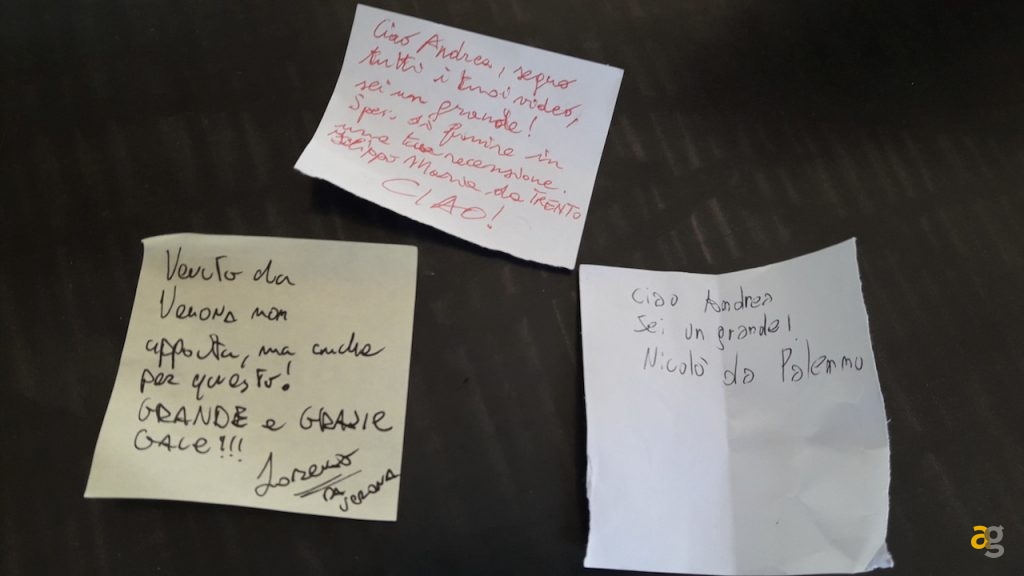 Ciao Andrea, seguo
tutti i tuoi video,
sei un grande!
Spero di finire in
una tua recensione.
Filippo Maria da TRENTO
CIAO!
Venuto da
Verona non
apposta, ma anche
per questo!
GRANDE e GRAZIE
GALE!!!
Lorenzo
DA VERONA
Ciao Andrea
Sei un grande!
Nicolò da Palermo
ag